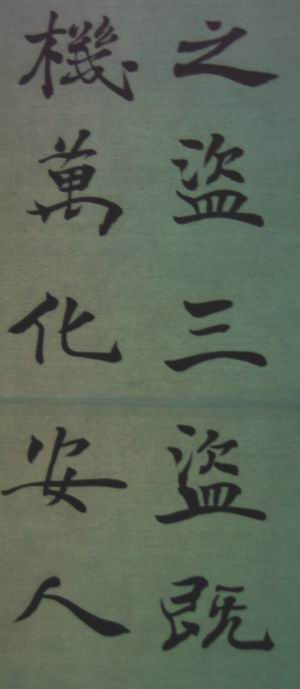 之盜三盜既
機萬化安人